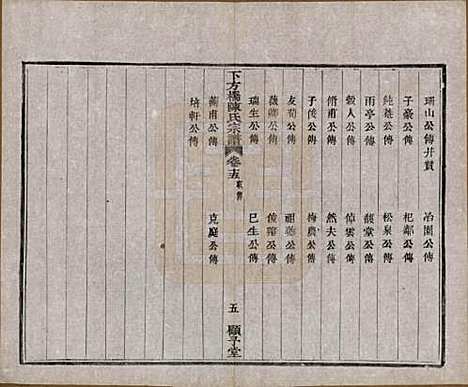 瑚山公傳并贊 冶園公傳
子豪公傳 杞鄰公傳
純葊公傳 松泉公傳
雨亭公傳 馥堂公傳
穀人公傳 倬雲公傳
脩甫公傳 然夫公傳
子俊公傳 梅農公傳
友荀公傳 祖蔭公傳
薇卿公傳 俊卿公傳
瑞生公傳 巳生公傳
下方橋陳氏宗譜 卷十五 家傳 五 顯予堂
蘅甫公傳 克庭公傳
培軒公傳